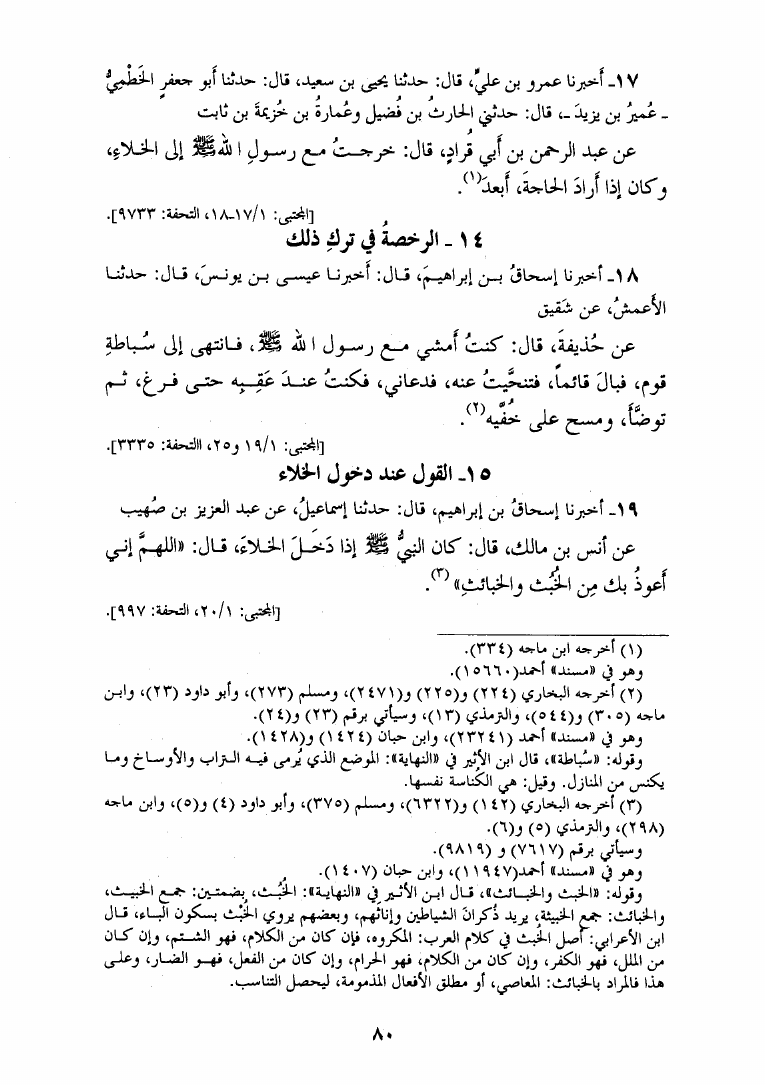 ١٧ـ أخبرنا عمرو بن عليٍّ، قال: حدثنا يحيى بن سعيد، قال: حدثنا أبو جعفرٍ الخَطْمِيُّ
ـ عُميرُ بن يزيدَ ـ، قال: حدثني الحارثُ بن فُضيل وعُمارةُ بن خُزيمةَ بن ثابت
عن عبد الرحمن بن أبي قُرادٍ، قال: خرجتُ مع رسولِ اللهﷺ إلى الخلاءِ،
وكان إذا أرادَ الحاجةَ، أبعدَ(١).
[المجتبى: ١٧/١-١٨، التحفة: ٩٧٣٣].
١٤ ـ الرخصةُ في تركِ ذلك
١٨ـ أخبرنا إسحاقُ بن إبراهيمَ، قال: أخبرنا عيسى بن يونسَ، قال: حدثنا
الأعمشُ، عن شَقيق
عن حُذيفةَ، قال: كنتُ أمشي مع رسول الله ﷺ، فانتهى إلى سُباطةِ
قوم، فبالَ قائماً، فتنحَّيتُ عنه، فدعاني، فكنتُ عندَ عَقِبِه حتى فرغ، ثم
توضَّأَ، ومسح على خُفَّيه(٢).
[المجتبى: ١٩/١ و٢٥، االتحفة: ٣٣٣٥].
١٥ـ القول عند دخول الخلاء
١٩ـ أخبرنا إسحاقُ بن إبراهيم، قال: حدثنا إسماعيلُ، عن عبد العزيز بن صُهيب
عن أنس بن مالك، قال: كان النبيُّ ﷺ إذا دَخَلَ الخلاءَ، قال: «اللهمَّ إني
أعوذُ بك مِن الخُبُث والخبائثِ» (٣).
[المجتبى: ٢٠/١، التحفة: ٩٩٧].
(١) أخرجه ابن ماجه (٣٣٤).
وهو في «مسند» أحمد(١٥٦٦٠).
(٢) أخرجه البخاري (٢٢٤) و(٢٢٥) و(٢٤٧١)، ومسلم (٢٧٣)، وأبو داود (٢٣)، وابن
ماجه (٣٠٥) و(٥٤٤)، والترمذي (١٣)، وسيأتي برقم (٢٣) و(٢٤).
وهو في «مسند» أحمد (٢٣٢٤١)، وابن حبان (١٤٢٤) و(١٤٢٨).
وقوله: «سُباطة»، قال ابن الأثير في «النهاية»: الموضع الذي يُرمى فيه التراب والأوساخ وما
يكنس من المنازل. وقيل: هي الكُناسة نفسها.
(٣) أخرجه البخاري (١٤٢) و(٦٣٢٢)، ومسلم (٣٧٥)، وأبو داود (٤) و(٥)، وابن ماجه
(٢٩٨)، والترمذي (٥) و(٦).
وسيأتي برقم (٧٦١٧) و (٩٨١٩).
وهو في «مسند» أحمد(١١٩٤٧)، وابن حبان (١٤٠٧).
وقوله: «الخبث والخبائث»، قال ابن الأثير في «النهاية»: الخُبُث، بضمتين: جمع الخبيث،
والخبائث: جمع الخبيثة، يريد ذُكرانَ الشياطين وإناثَهم، وبعضهم يروي الخُبْث بسكون الباء، قال
ابن الأعرابي: أصل الخُبث في كلام العرب: المكروه، فإن كان من الكلام، فهو الشتم، وإن كان
من الملل، فهو الكفر، وإن كان من الكلام، فهو الحرام، وإن كان من الفعل، فهو الضار، وعلى
هذا فالمراد بالخبائث: المعاصي، أو مطلق الأفعال المذمومة، ليحصل التناسب.
٨٠